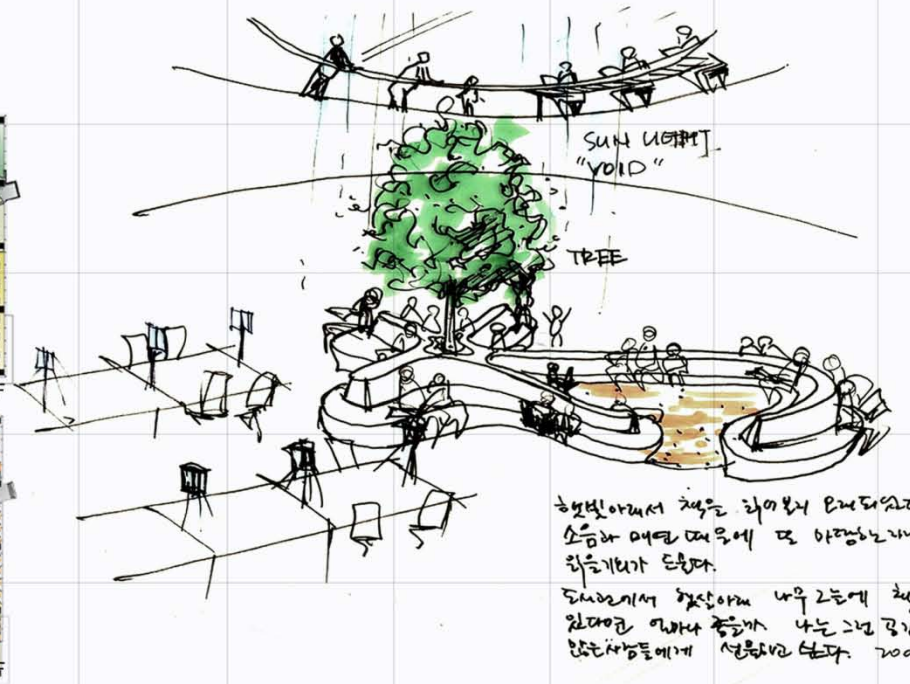 SUN LIGHT
"VOID"
TREE
햇빛아래서 책을 읽어본지 오래되었다
소음과 매연 때문에 또 마땅하
읽을기회가 드물다.
도서관에서 햇살아래 나무그늘에
있다면 얼마나 좋을까. 나는 그런 공
많은사람들에게 선물하고 싶다. 200